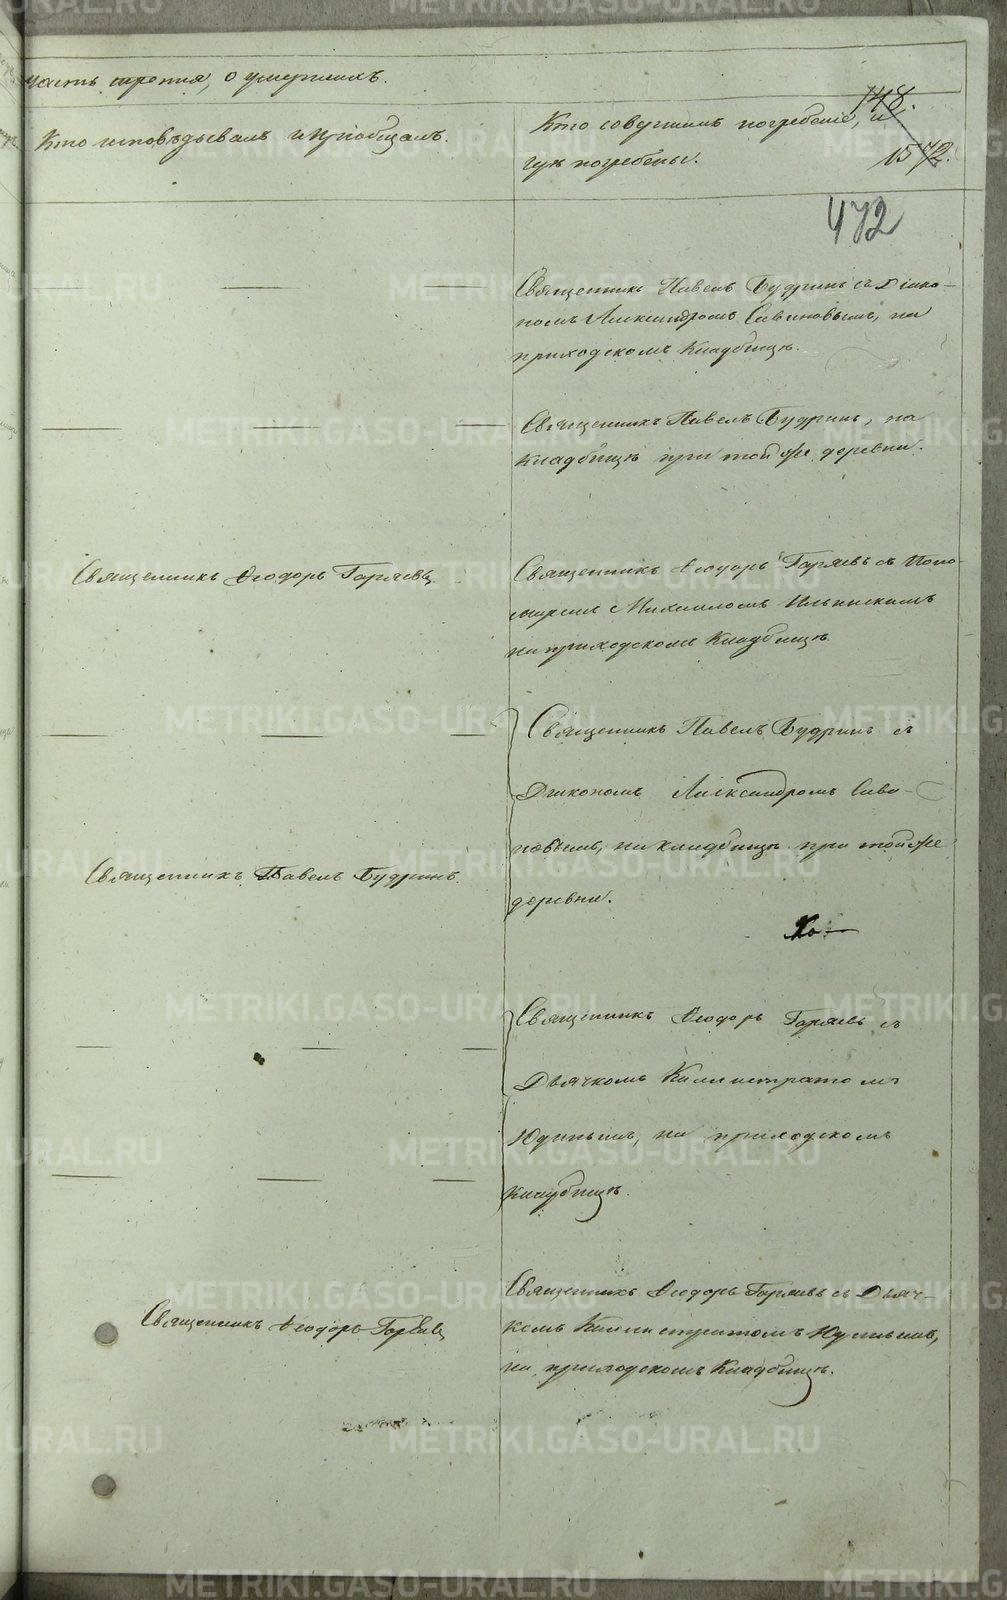 часть третія, о умершихъ.
Кто исповѣдывалъ и пріобщалъ.
Кто совершилъ погребеніе, и
гдѣ погребены.
148.
1572.
472
Священникъ Павелъ Будринъ съ Діако-
номъ Александромъ Савиновымъ, на
приходскомъ кладбищѣ.
Священникъ Павелъ Будринъ, на
кладбищѣ при той же деревни.
Священникъ Ѳеодоръ Горяевъ
Священникъ Ѳеодоръ Горяевъ съ Поно-
маремъ Михаиломъ Ильинскимъ
на приходскомъ кладбищѣ.
Священникъ Павелъ Будринъ съ
Діакономъ Александромъ Сави-
новымъ, на кладбищѣ при той же
деревни.
Священникъ Павелъ Будринъ.
Ко—
Священникъ Ѳеодоръ Горяевъ съ
Дьячкомъ Каллистратомъ
Юдинымъ, на приходскомъ
кладбищѣ.
Священникъ Ѳеодоръ Горяевъ
Священникъ Ѳеодоръ Горяевъ съ Дьяч-
комъ Каллистратомъ Юдинымъ,
на приходскомъ кладбищѣ.
METRIKI.GASO-URAL.RU